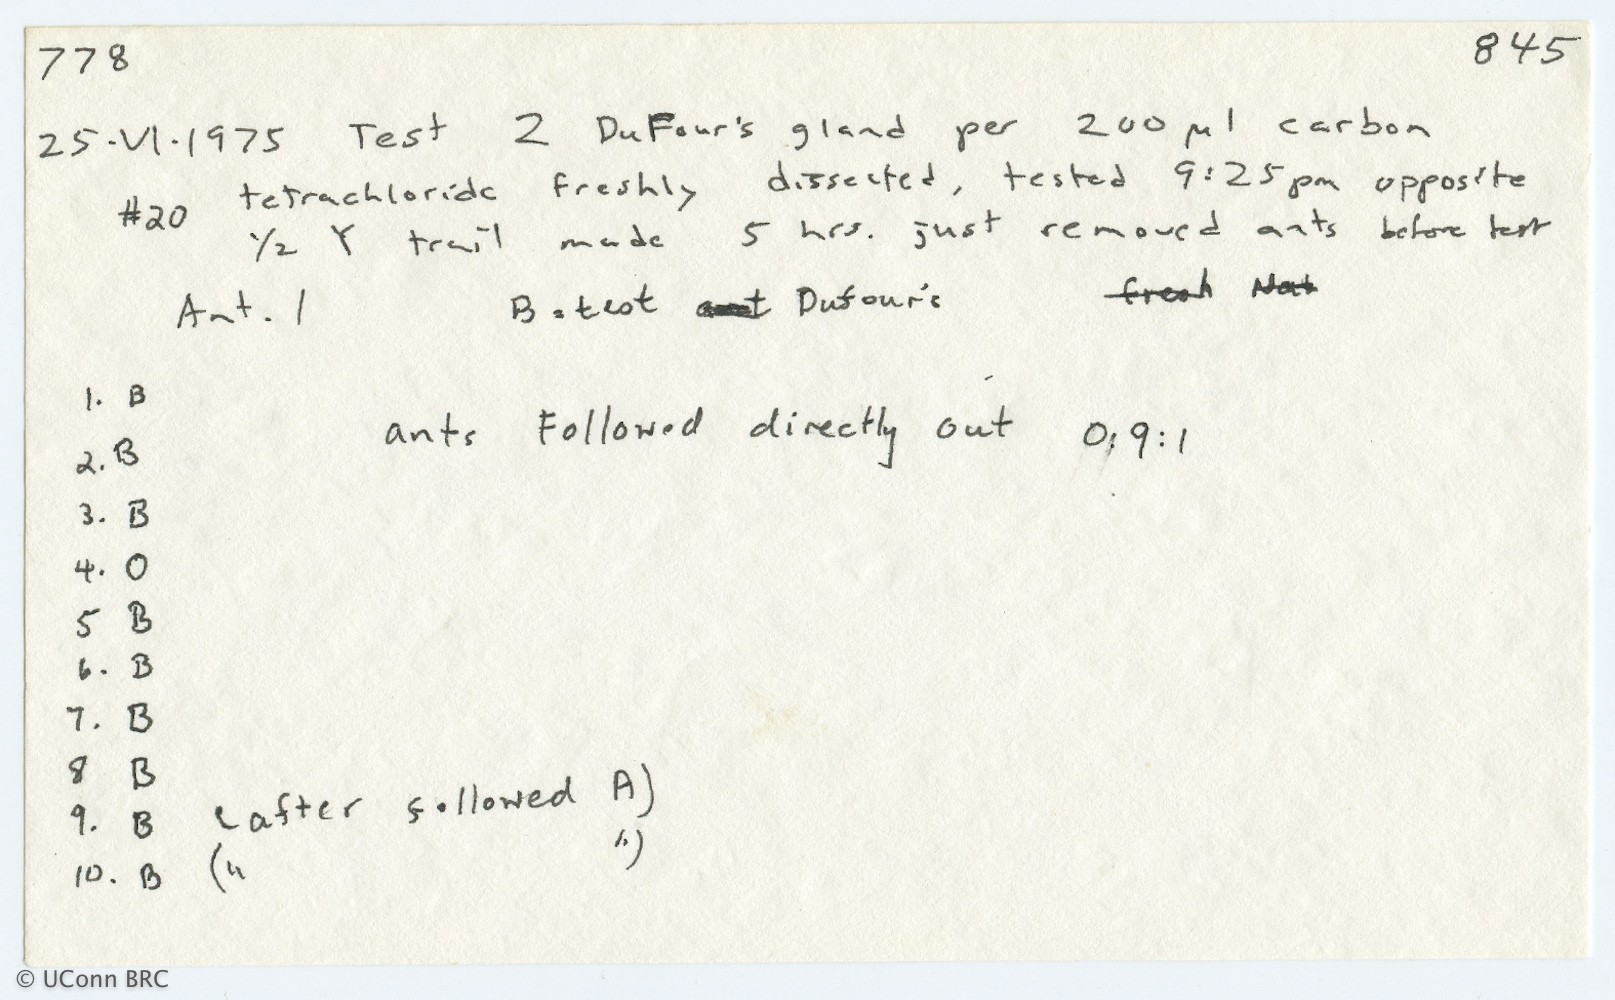 778 845
25·VI·1975 Test 2 DuFour's gland per 200 µl carbon
#20 tetrachloride freshly dissected, tested 9:25pm opposite
1/2 Y trail made 5 hrs. just removed ants before test
Ant. 1 B = test Dufour's fresh Nat
1. B
ants Followed directly out 0:9:1
2. B
3. B
4. O
5 B
6. B
7. B
8 B
9. B (after followed A)
10. B (" ")
© UConn BRC